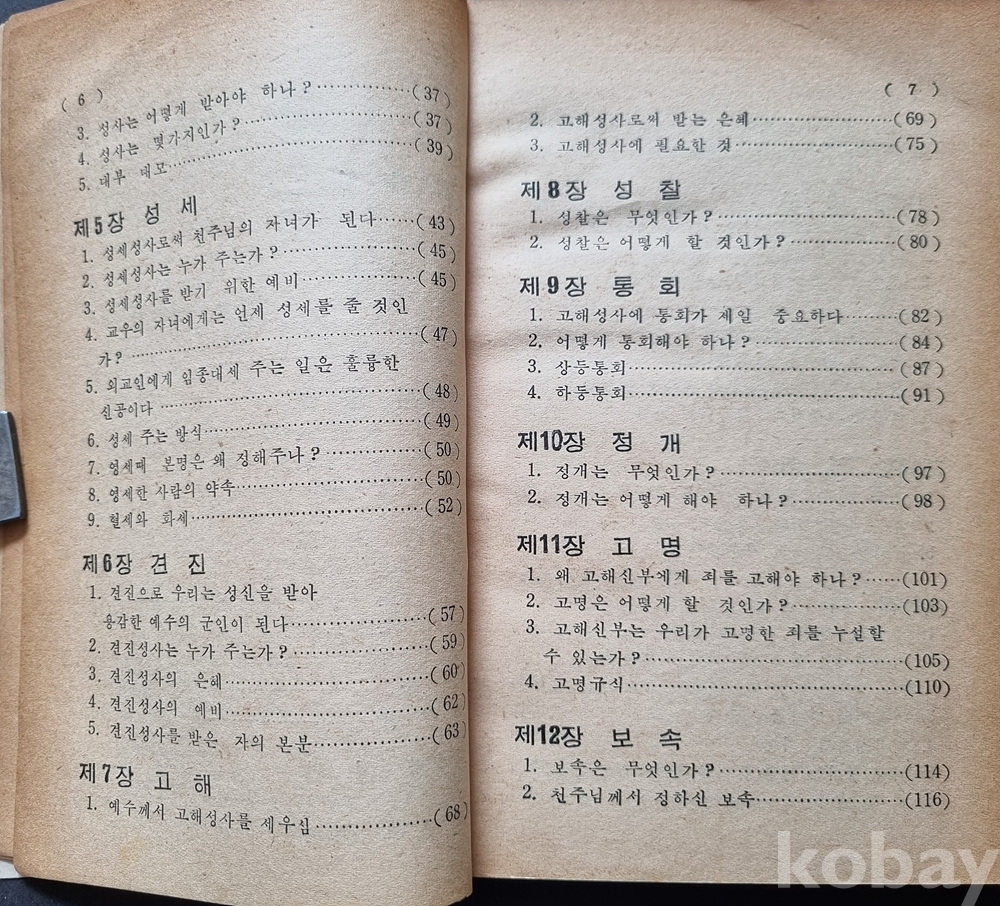 ( 6 )
3. 성사는 어떻게 받아야 하나?……………(37)
4. 성사는 몇가지인가?……………(37)
5. 대부 대모……………(39)
제5장 성 세
1. 성세성사로써 천주님의 자녀가 된다……(43)
2. 성세성사는 누가 주는가?……………(45)
3. 성세성사를 받기 위한 예비……………(45)
4. 교우의 자녀에게는 언제 성세를 줄 것인
가?……………(47)
5. 외교인에게 임종대세 주는 일은 훌륭한
신공이다……………(48)
6. 성세 주는 방식……………(49)
7. 영세때 본명은 왜 정해주나?……………(50)
8. 영세한 사람의 약속……………(50)
9. 혈세와 화세……………(52)
제6장 견 진
1. 견진으로 우리는 성신을 받아
용감한 예수의 군인이 된다……………(57)
2. 견진성사는 누가 주는가?……………(59)
3. 견진성사의 은혜……………(60)
4. 견진성사의 예비……………(62)
5. 견진성사를 받은 자의 본분……………(63)
제7장 고 해
1. 예수께서 고해성사를 세우심……………(68)
( 7 )
2. 고해성사로써 받는 은혜……………(69)
3. 고해성사에 필요한 것……………(75)
제8장 성 찰
1. 성찰은 무엇인가?……………(78)
2. 성찰은 어떻게 할 것인가?……………(80)
제9장 통 회
1. 고해성사에 통회가 제일 중요하다………(82)
2. 어떻게 통회해야 하나?……………(84)
3. 상등통회……………(87)
4. 하등통회……………(91)
제10장 정 개
1. 정개는 무엇인가?……………(97)
2. 정개는 어떻게 해야 하나?……………(98)
제11장 고 명
1. 왜 고해신부에게 죄를 고해야 하나?……(101)
2. 고명은 어떻게 할 것인가?……………(103)
3. 고해신부는 우리가 고명한 죄를 누설할
수 있는가?……………(105)
4. 고명규식……………(110)
제12장 보 속
1. 보속은 무엇인가?……………(114)
2. 천주님께서 정하신 보속……………(116)
kobay